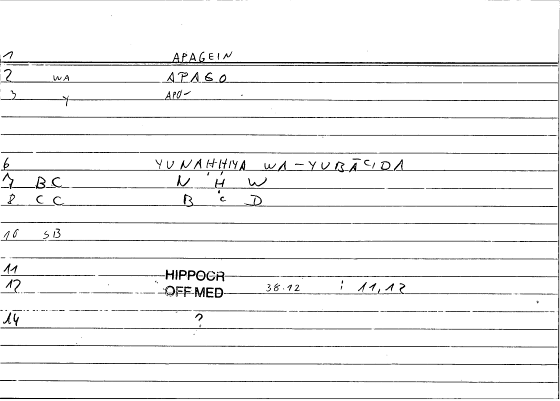 1 APAGEIN
2 WA APAGO
3 Y APO-
6 YUNAHHIYA WA-YUBĀCIDA
7 BC N Ḥ W
8 CC B c D
10 SB
11 HIPPOCR
12 OFF MED 38.12 : 11,12
14 ?